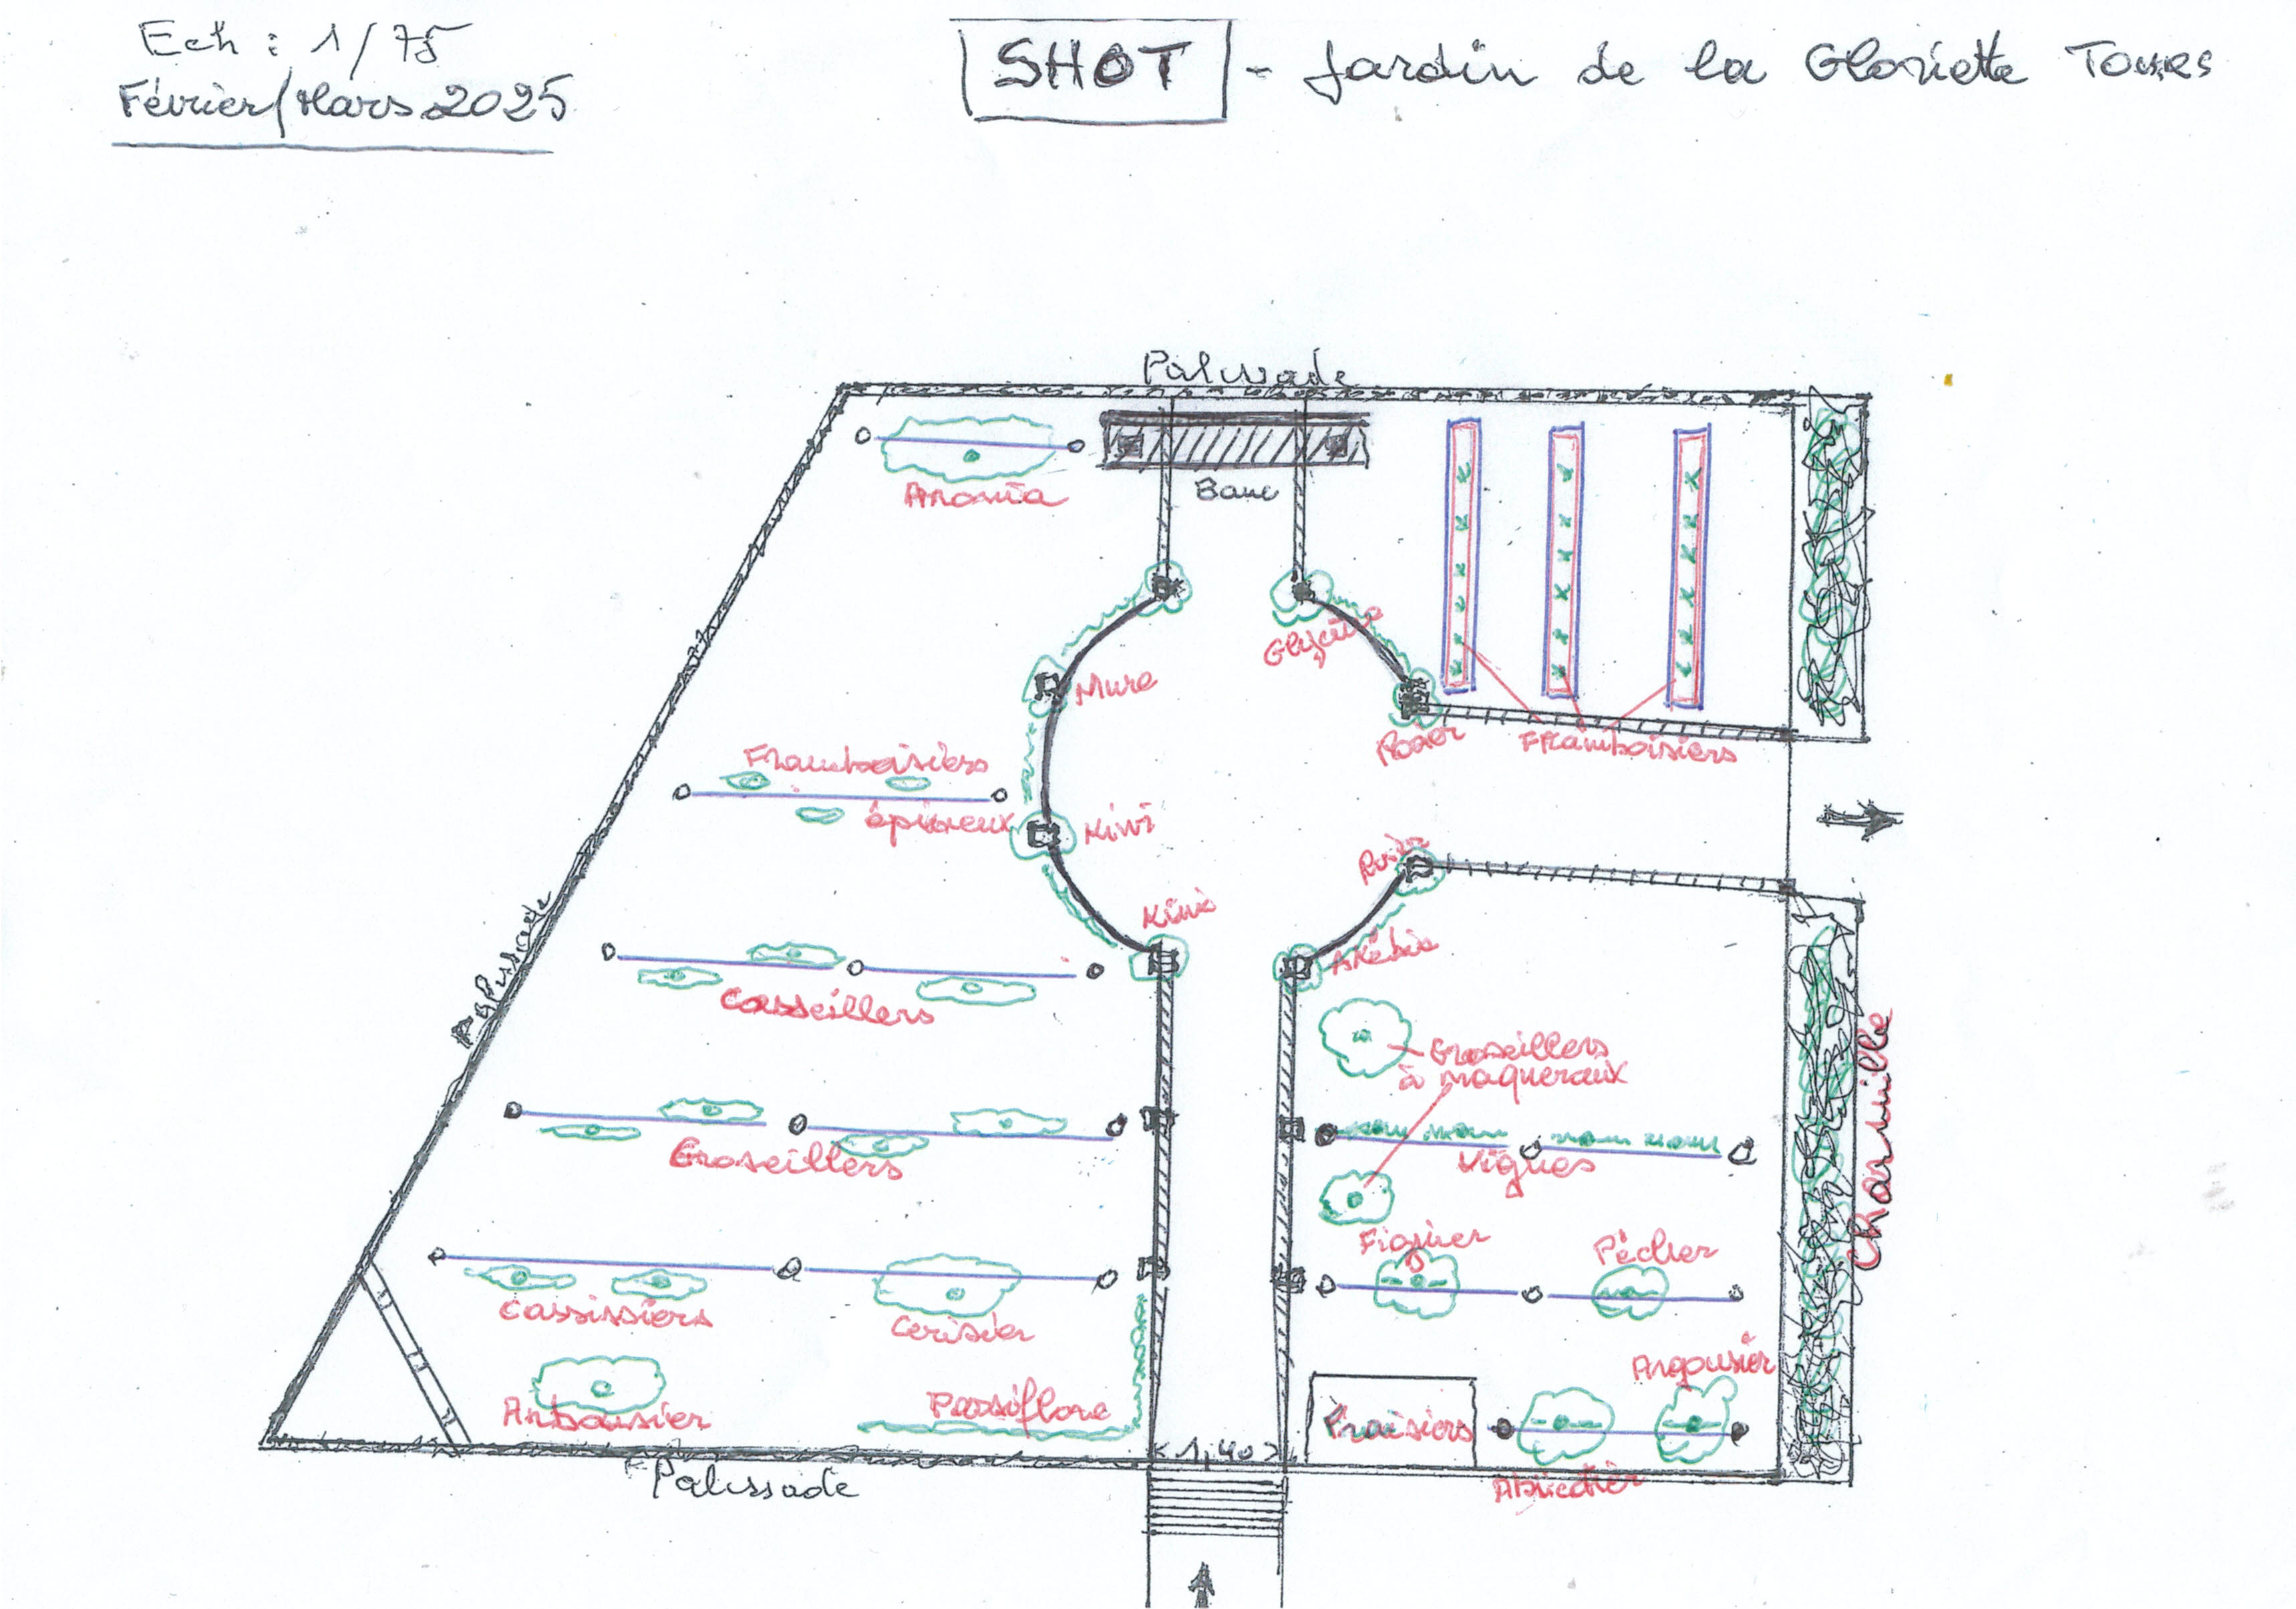 Ech : 1/75
Février/Mars 2025
SHOT - Jardin de la Gloriette Tours
Palissade
Aronia
Banc
Glycine
Mure
Rosier
Framboisiers
Framboisiers
épineux
Kiwi
Rosier
Kiwi
Akébie
Palissade
Casseillers
Groseillers
à maqueraux
Charmille
Groseillers
Vignes
Figuier
Pêcher
Cassissiers
Cerisier
Argousier
Arbousier
Passiflore
Fraisiers
<1,40>
Palissade
Abricotier